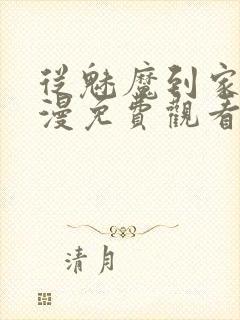 從魅魔到家
漫免費觀看
清月